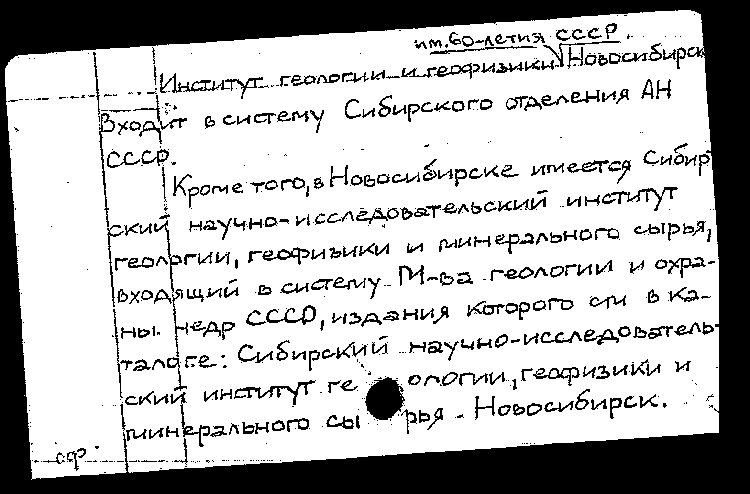 им. 60-летия СССР.
Институт геологии и геофизики Новосибирск
Входит в систему Сибирского отделения АН
СССР.
Кроме того, в Новосибирске имеется Сибир
ский научно-исследовательский институт
геологии, геофизики и минерального сырья,
входящий в систему М-ва геологии и охра-
ны недр СССР, издания которого см в ка-
талоге: Сибирский научно-исследователь-
ский институт ге ологии, геофизики и
минерального сы рья - Новосибирск.